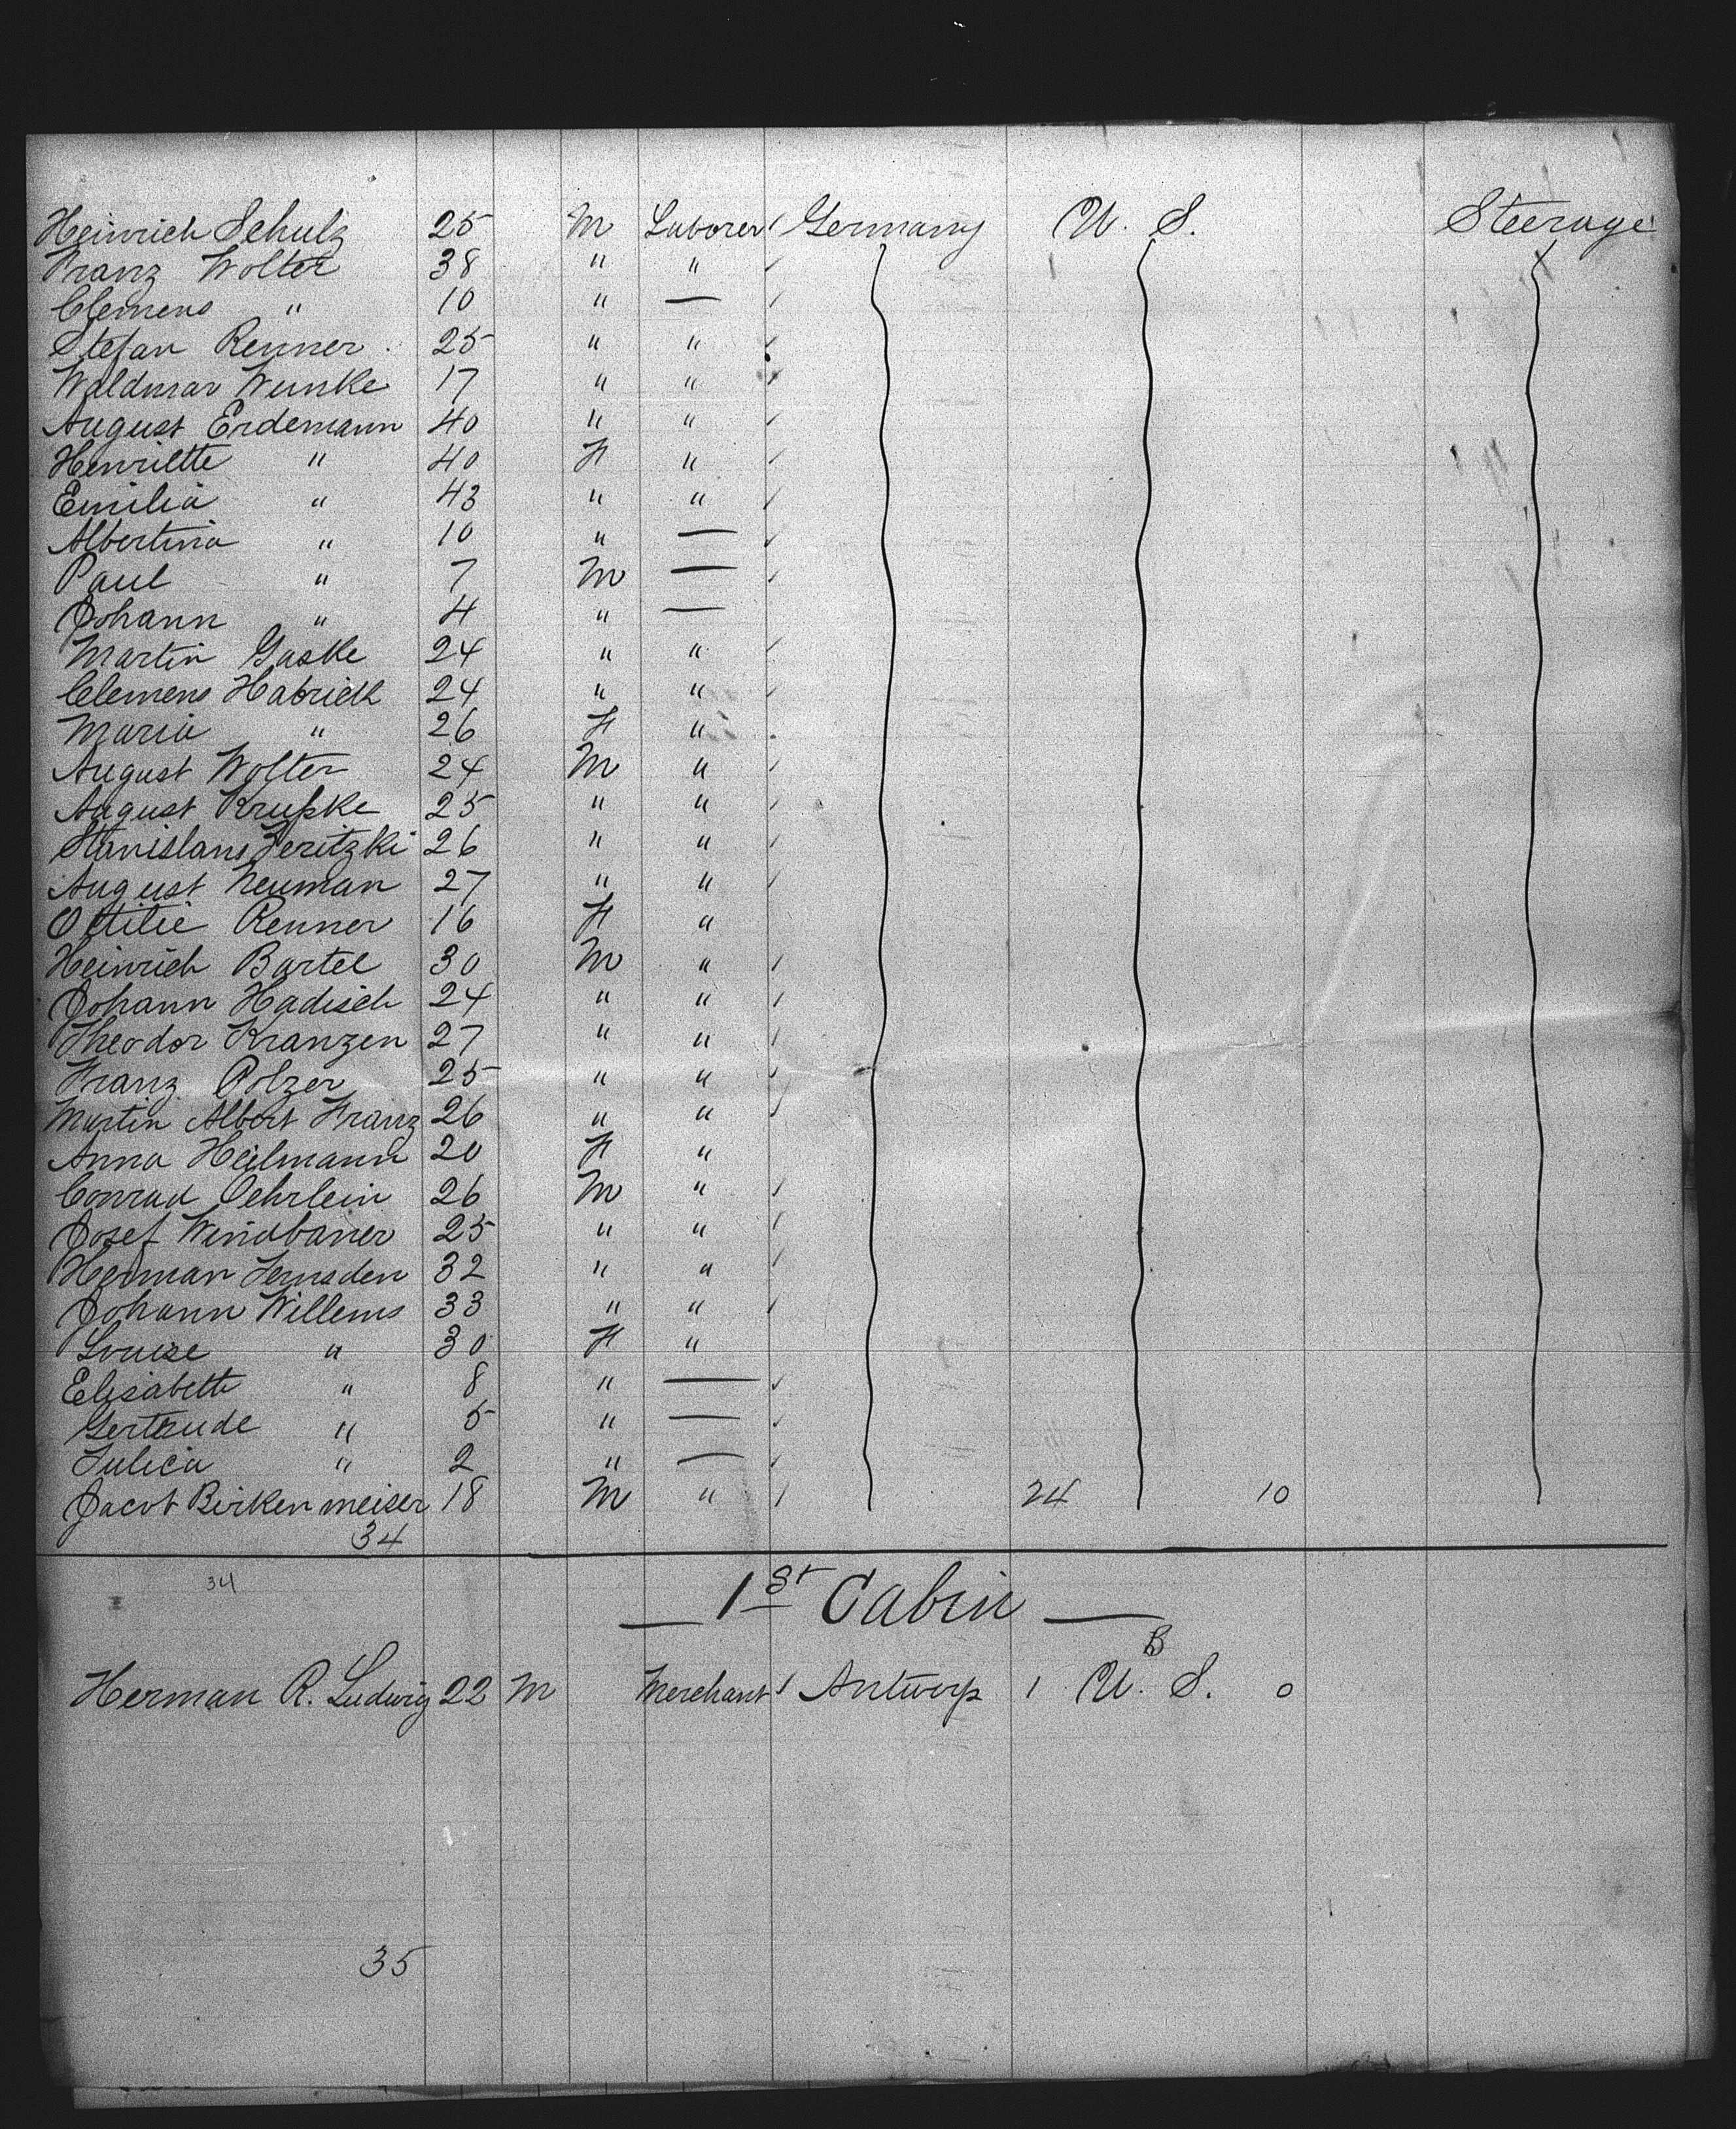 Heinrich Schulz 25 M Laborer Germany U. S. Steerage
Franz Wolter 38 " "
Clemens " 10 " —
Stefan Renner 25 " "
Waldmar Wunke 17 " "
August Erdemann 40 " "
Henriette " 40 F "
Emilia " 43 " "
Albertina " 10 " —
Paul " 7 M —
Johann " 4 " —
Martin Gaske 24 " "
Clemens Habrick 24 " "
Maria " 26 F "
August Wolter 24 M "
August Krupke 25 " "
Stanislaus 26 " "
August Neuman 27 " "
Ottilie Renner 16 F "
Heinrich Bartel 30 M "
Johann Hadisch 24 " "
Theodor Kranzen 27 " "
Franz Polzer 25 " "
Martin Albert Franz 26 " "
Anna Heilmann 20 F "
Conrad Oehrlein 26 M "
Josef Windbauer 25 " "
Herman 32 " "
Johann Willems 33 " "
Louise " 30 F "
Elisabeth " 8 " —
Gertrude " 5 " —
Julica " 2 " —
Jacob Birkenmeiser 18 M " 24 10
34
34
— 1st Cabin —
B
Herman R. Ludwig 22 M Merchant Antwerp 1 U. S. 0
35